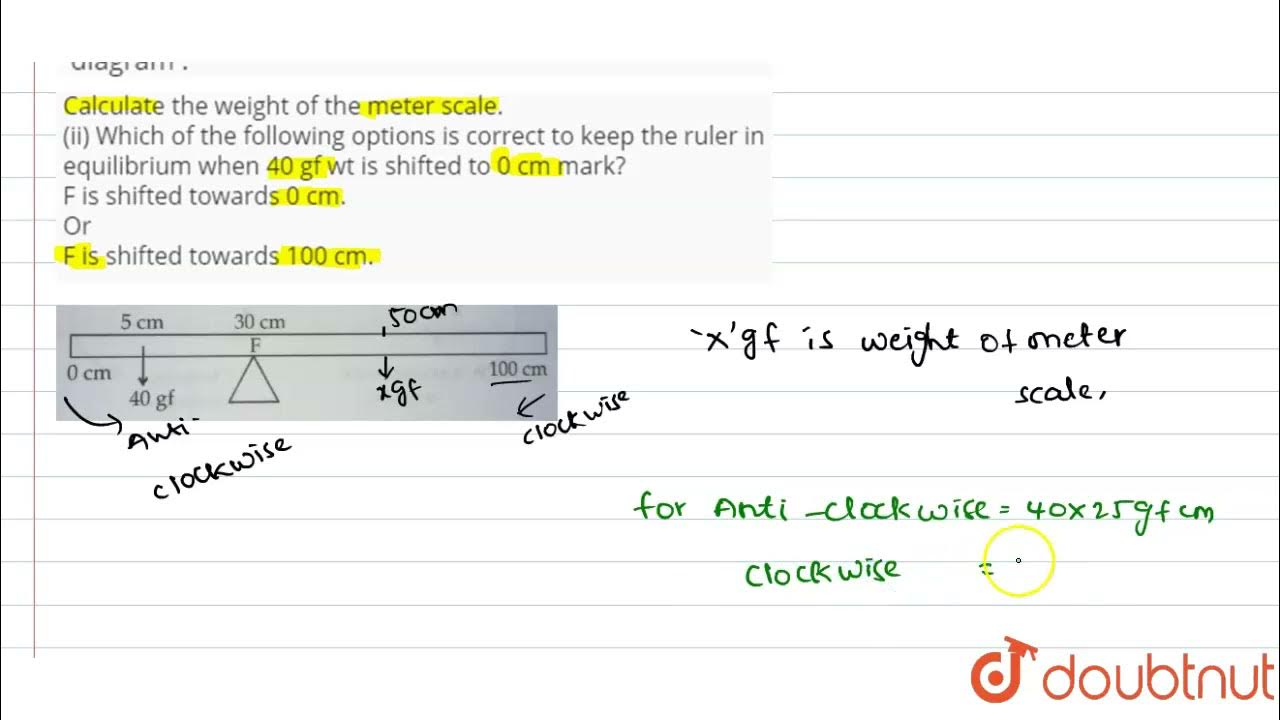 diagram .
Calculate the weight of the meter scale.
(ii) Which of the following options is correct to keep the ruler in
equilibrium when 40 gf wt is shifted to 0 cm mark?
F is shifted towards 0 cm.
Or
F is shifted towards 100 cm.
5 cm 30 cm 50cm
F
0 cm 100 cm
40 gf xgf
Anti-
clockwise
clockwise
'x'gf is weight of meter
scale,
for Anti-clockwise = 40x25gf cm
clockwise =
doubtnut